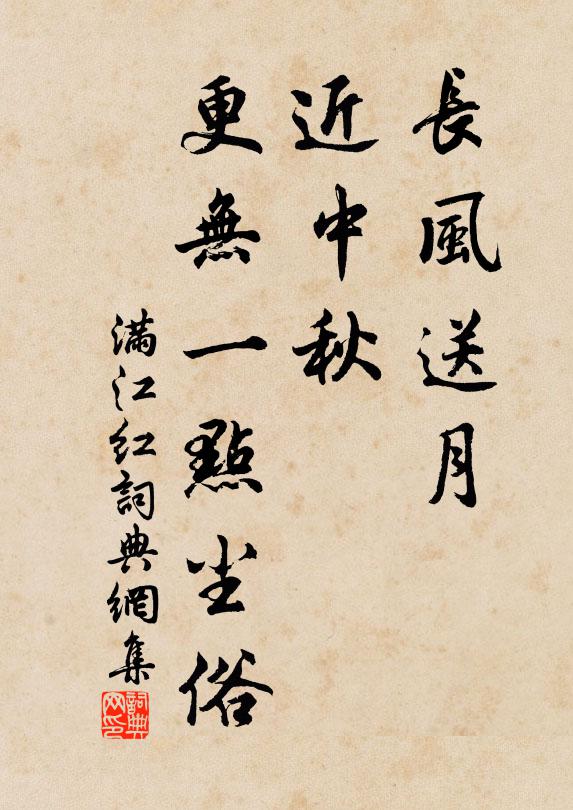 長風送月
近中秋
更無一點尘俗
滿江红詞典網集
詞典
网印